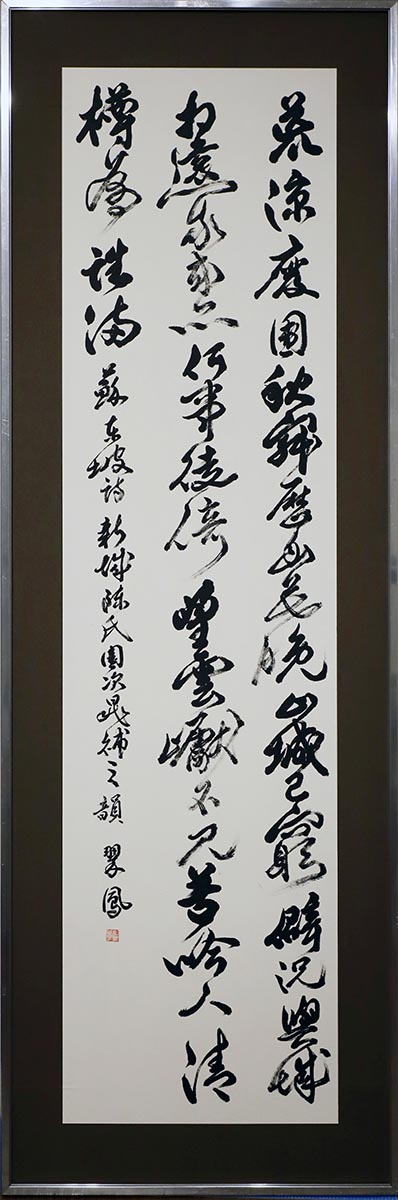 荒涼廢圃秋寂歷幽花晚山城已窮僻況與城
相遠我来亦何事徙倚望雲巘不見苦吟人清
樽為誰満 蘇東坡詩 新城陳氏園次晁補之韻 翠鳳